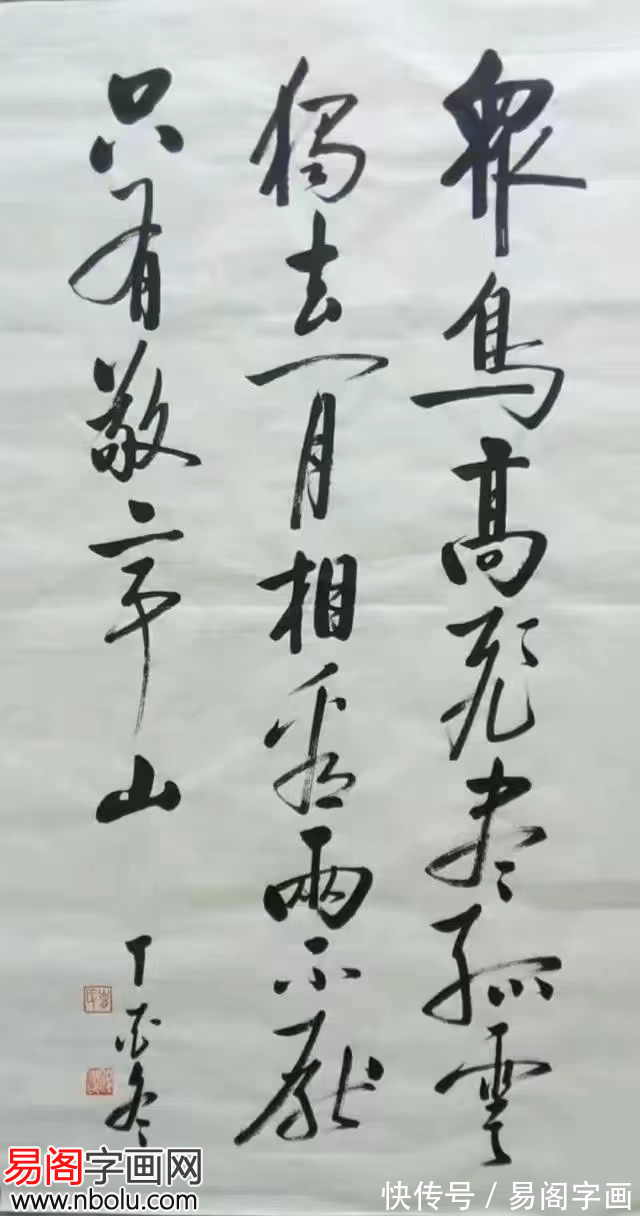 眾鳥高飛盡孤雲
獨去閒相看兩不厭
只有敬亭山
丁酉冬
易阁字画网
www.nbolu.com
快传号 / 易阁字画